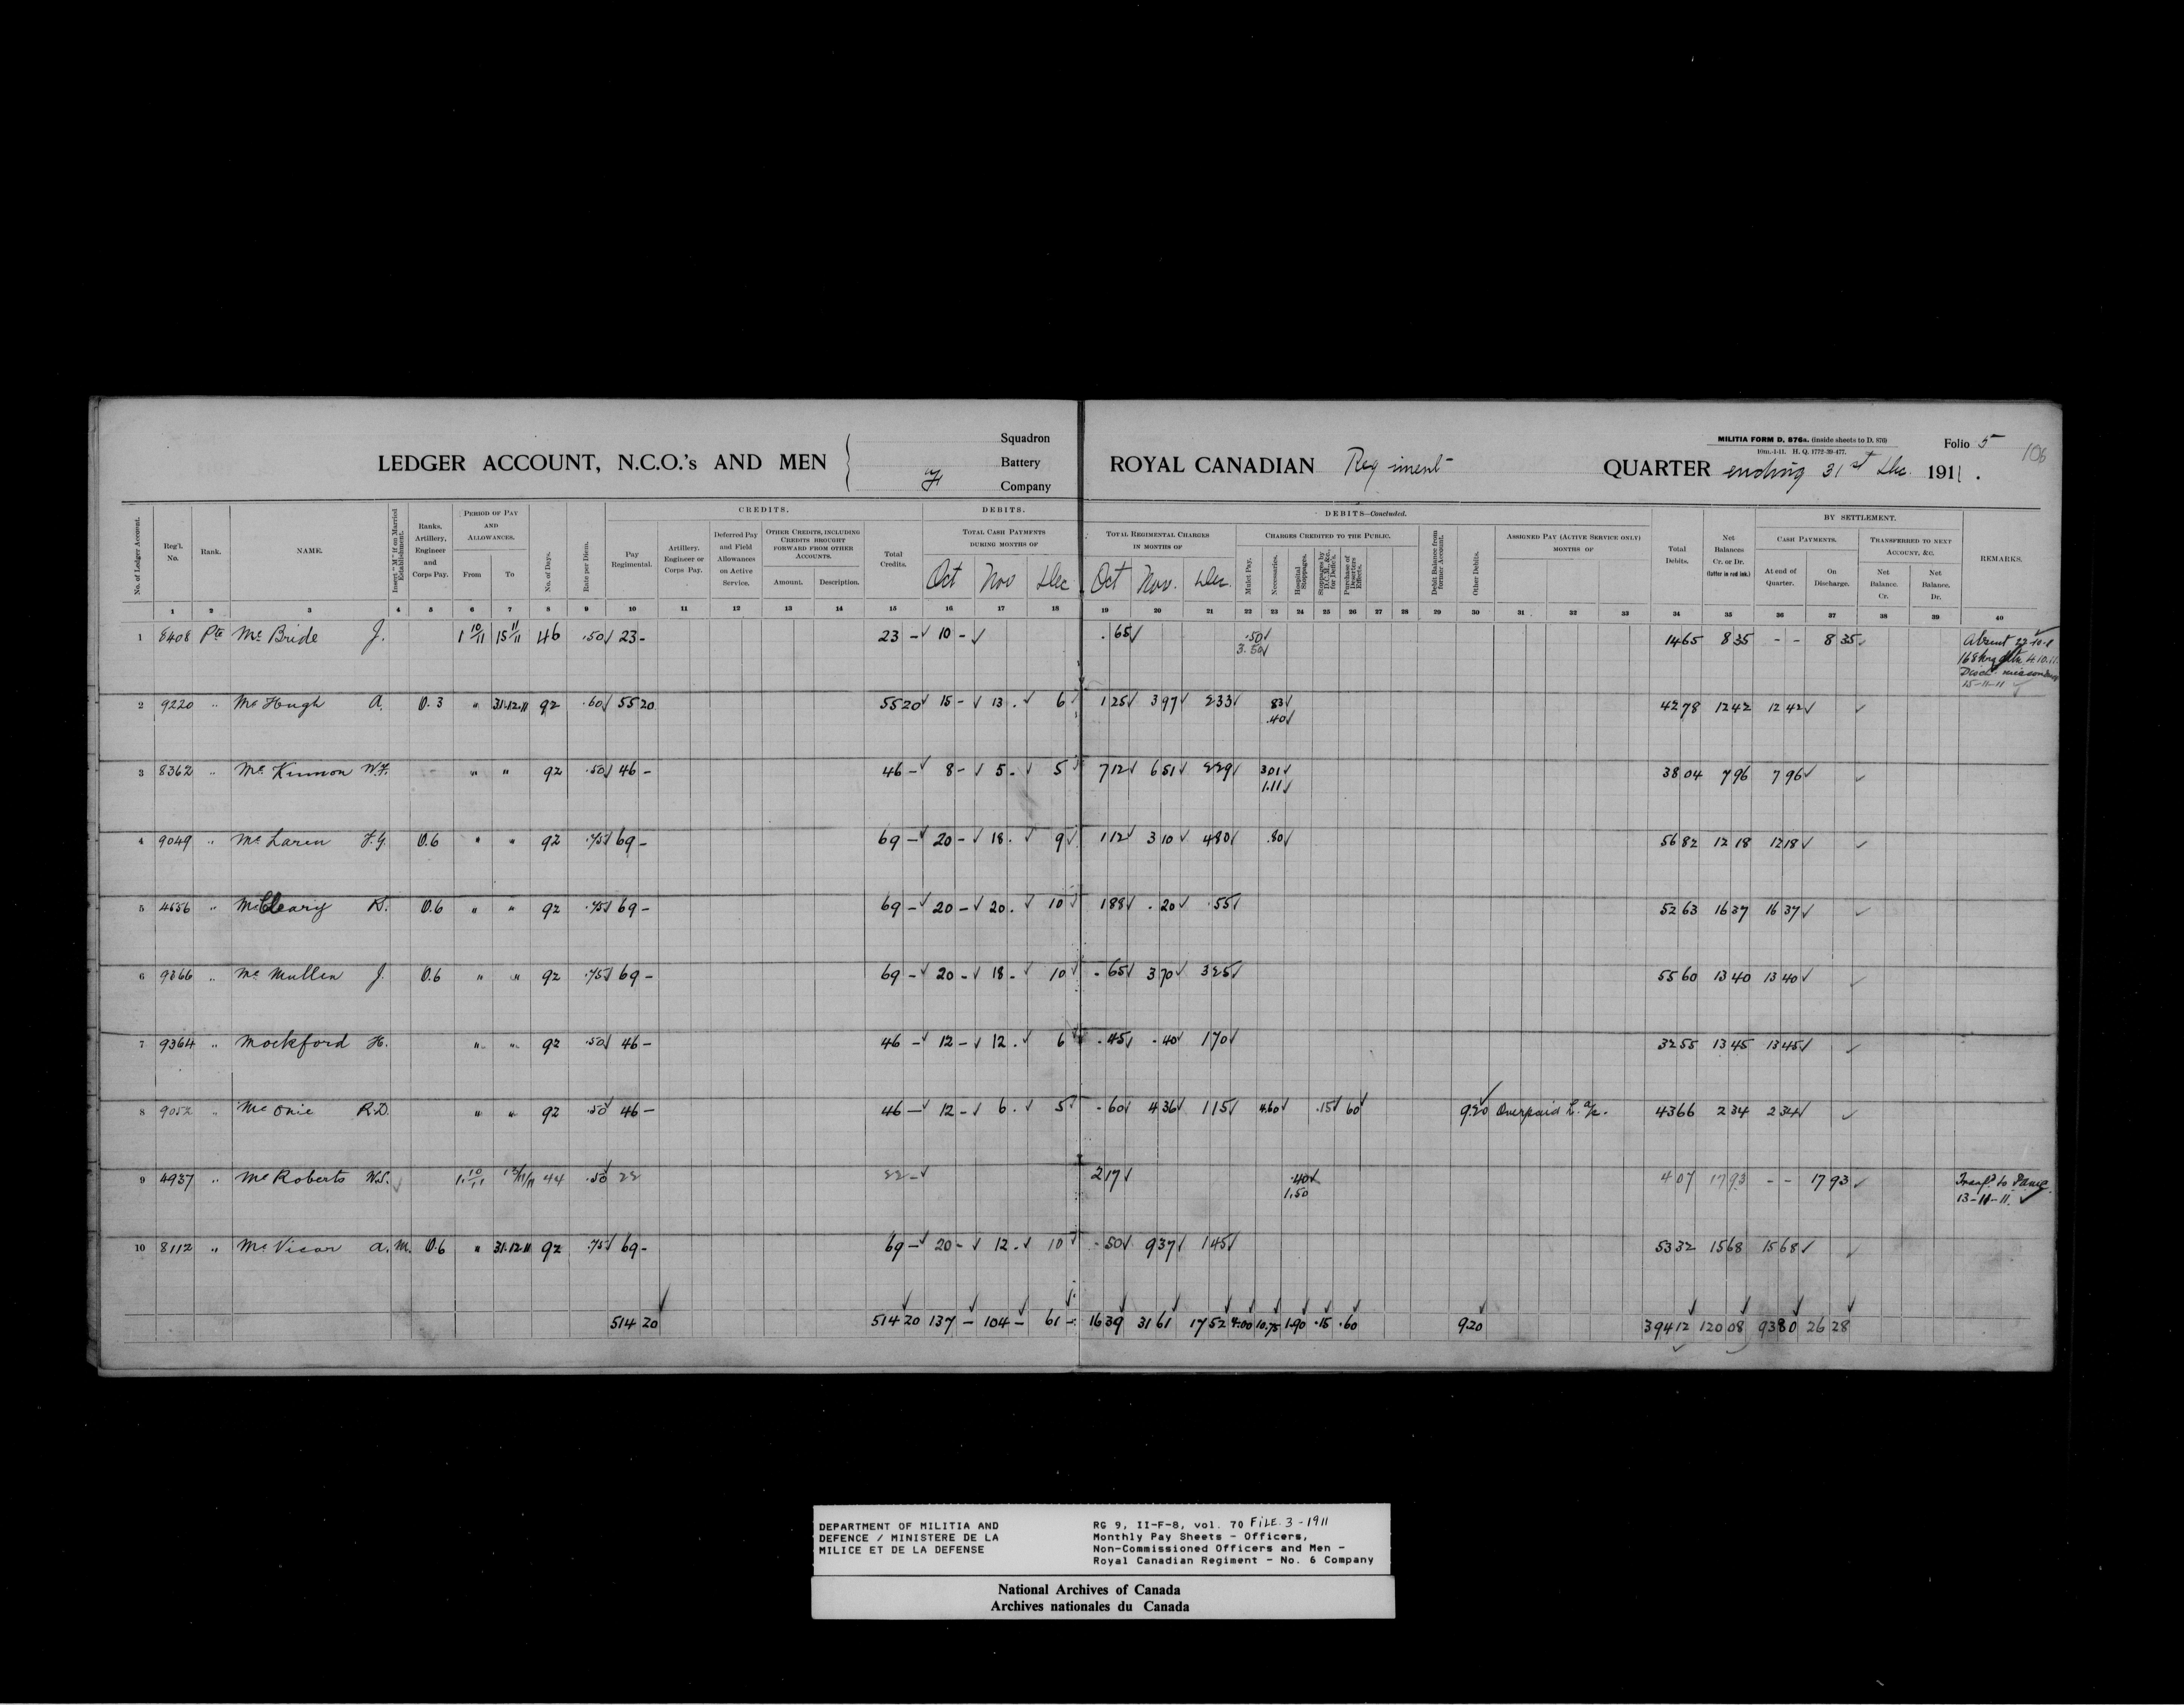 MILITIA FORM D. 876a. (inside sheets to D. 876)
10m.-1-11. H. Q. 1772-39-477.
Folio 5
106
LEDGER ACCOUNT, N.C.O.'s AND MEN
Squadron
Battery
Company
ROYAL CANADIAN Regiment
QUARTER ending 31st Dec. 1911.
No. of Ledger Account.
Reg'l. No.
Rank.
NAME.
Insert "M" if on Married Establishment.
Ranks, Artillery, Engineer and Corps Pay.
PERIOD OF PAY AND ALLOWANCES.
From
To
No. of Days.
Rate per Diem.
CREDITS.
Pay Regimental.
Artillery, Engineer or Corps Pay.
Deferred Pay and Field Allowances on Active Service.
OTHER CREDITS, INCLUDING CREDITS BROUGHT FORWARD FROM OTHER ACCOUNTS.
Amount.
Description.
Total Credits.
DEBITS.
TOTAL CASH PAYMENTS DURING MONTHS OF
Oct Nov Dec
DEBITS—Concluded.
TOTAL REGIMENTAL CHARGES IN MONTHS OF
Oct Nov. Dec.
CHARGES CREDITED TO THE PUBLIC.
Mulct Pay.
Necessaries.
Hospital Stoppages.
Stoppages by D.C.M., &c., for Defic's.
Purchase of Deserters Effects.
Debit Balance from former Account.
Other Debits.
ASSIGNED PAY (ACTIVE SERVICE ONLY) MONTHS OF
Total Debits.
Net Balances Cr. or Dr. (latter in red ink.)
BY SETTLEMENT.
CASH PAYMENTS.
At end of Quarter.
On Discharge.
TRANSFERRED TO NEXT ACCOUNT, &C.
Net Balance. Cr.
Net Balance. Dr.
REMARKS.
1 2 3 4 5 6 7 8 9 10 11 12 13 14 15 16 17 18 19 20 21 22 23 24 25 26 27 28 29 30 31 32 33 34 35 36 37 38 39 40
1 8408 Pte McBride J. 1 10/11 15 11/11 46 .50 23 - 23 - 10 - .65 .50 14 65 8 35 - - 8 35 Absent 22-10-11
3.50
15-11-11
2 9220 " McHugh A. 0.3 " 31.12.11 92 .60 55 20 55 20 15 - 13 . 6 1 25 3 97 2 33 83 42 78 12 42 12 42
.40
3 8362 " McKinnon W.F. " " 92 .50 46 - 46 - 8 - 5 - 5 7 12 6 51 2 29 3 01 38 04 7 96 7 96
1.11
4 9049 " McLaren F.G. 0.6 " " 92 .75 69 - 69 - 20 - 18 . 9 1 12 3 10 4 80 .80 56 82 12 18 12 18
5 4656 " McCleary 0.6 " " 92 .75 69 - 69 - 20 - 20 . 10 1 88 . 20 . 55 52 63 16 37 16 37
6 9366 " McMullen J. 0.6 " " 92 .75 69 - 69 - 20 - 18 - 10 - 65 3 70 3 25 55 60 13 40 13 40
7 9364 " Mockford H. " " 92 .50 46 - 46 - 12 - 12 . 6 . 45 . 40 1 70 32 55 13 45 13 45
8 9052 " R.D. " " 92 .50 46 - 46 - 12 - 6 . 5 - 60 4 36 1 15 4.60 .15 60 9.20 Overpaid L. a/c. 43 66 2 34 2 34
9 4937 " McRoberts W.S. 1. 10/11 13/11/11 44 .50 22 22 - 2 17 .40 4 07 17 93 - - 17 93 Transf. to
1.50 13-11-11.
10 8112 " McVicar A. M. 0.6 " 31.12.11 92 .75 69 - 69 - 20 - 12 . 10 - 50 9 37 1 45 53 32 15 68 15 68
514 20 514 20 137 - 104 - 61 - 16 39 31 61 17 52 4.00 10.75 1.90 .15 .60 9.20 394 12 120 08 93 80 26 28
DEPARTMENT OF MILITIA AND
DEFENCE / MINISTERE DE LA
MILICE ET DE LA DEFENSE
RG 9, II-F-8, vol. 70 FILE. 3-1911
Monthly Pay Sheets - Officers,
Non-Commissioned Officers and Men -
Royal Canadian Regiment - No. 6 Company
National Archives of Canada
Archives nationales du Canada